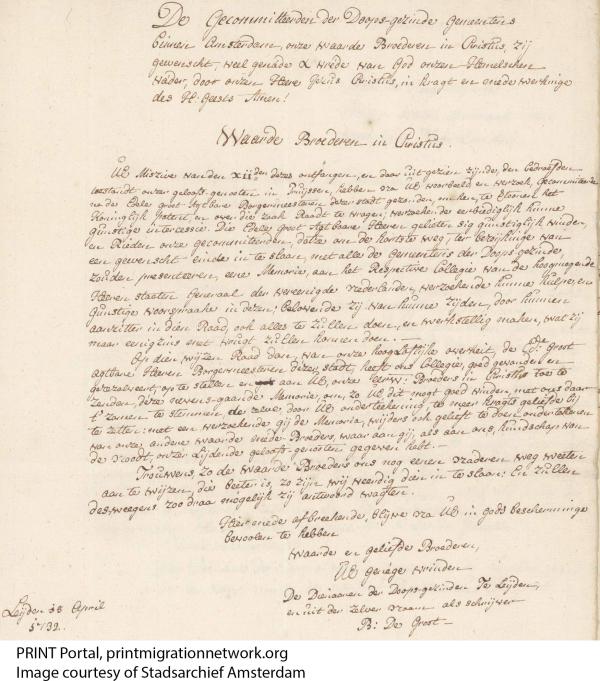 De Gecommitteerden der Doops-gezinde Gemeentens
binnen Amsterdam, onze waarde Broederen in Christus, zij
gewenscht, veel genade & vrede van God onzen Hemelschen
Vader, door onzen Heere Jesus Christus, in kragt en mede werkinge
des H: Geests Amen!
Waarde Broederen in Christus.
UE Missive van den XIIden dezes ontfangen, en daar uit gezien zijnde, den bedroefden
toestandt onzer geloofs-genooten in Pruijssen, hebben wy UE voorbeeld en verzoek, Gecommitteerde
na de Edele groot Agtbare Borgermeesteren dezer stadt gezonden, om hen, te Elonen het
Koninglijk en over die zaak Raadt te vragen; verzoekende eerbiediglijk hunne
gunstige intercessie. Die Edele Groot Agtbare Heeren gelieten sig gunstiglijk vinden,
en Rieden onze gecommitteerden, dat ze om de kortste weg, ter bereijkinge van
een gewenscht einde in te slaan, met alle de Gemeentens der Doops-gezinde
zouden presenteeren, eene Memorie, aan het Respective Collegie van de hoogmogende
Heeren staaten Generaal der vereenigde Nederlanden, verzoekende hunne hulpe, en
gunstige voorspraake in dezen; belovende zij van hunne zijden, door hunnen
aanzitter in dien Raad, ook alles te zullen doen, en werkstellig maken, wat zij
maar eenigzins met vrugt zullen konnen doen. -
Op dien wijzen Raad dan, van onze hooglofflijke overheit, de Ed: Groot
agtbare Heeren Borgermeesteren dezer stadt, heeft ons Collegie, goed gevonden en
geresolveert, op te stellen en aan UE, onze Eerw: Broeders in Christus toe te
zenden, deze nevens-gaande Memorie, om, zo UE dit mogt goed vinden, met ons daar
t' zamen te stemmen de zelve, door UE ondertekening, te meer kragts geliefde bij
te zetten: met een verzoekende gij de Memorie, wijders ook gelieft te doen ondertekenen
van onze, andere waarde mede Broeders, waar aan gij, als aan ons, kundschap van
de noodt, onzer Lijdende geloofs-genooten gegeven hebt. -
Trouwens, zo de waarde Broeders ons nog eenen naderen weg weeten
aan te wijzen, die beeter is, zo zijn wij veerdig dien in te slaan: En zullen
desweegen zoo draa mogelijk zij antwoord wagten.
Hier mede afbreekende, blijve na UE in gods bescherminge
bevoolen te hebben
waarde en geliefde Broederen,
UE genege vrinden
De Dienaaren der Doops-gezinden Te Leijden,
en uit der zelver naam als schrijver
B: De Groot -
Leijden 18 April
1732.
PRINT Portal, printmigrationnetwork.org
Image courtesy of Stadsarchief Amsterdam